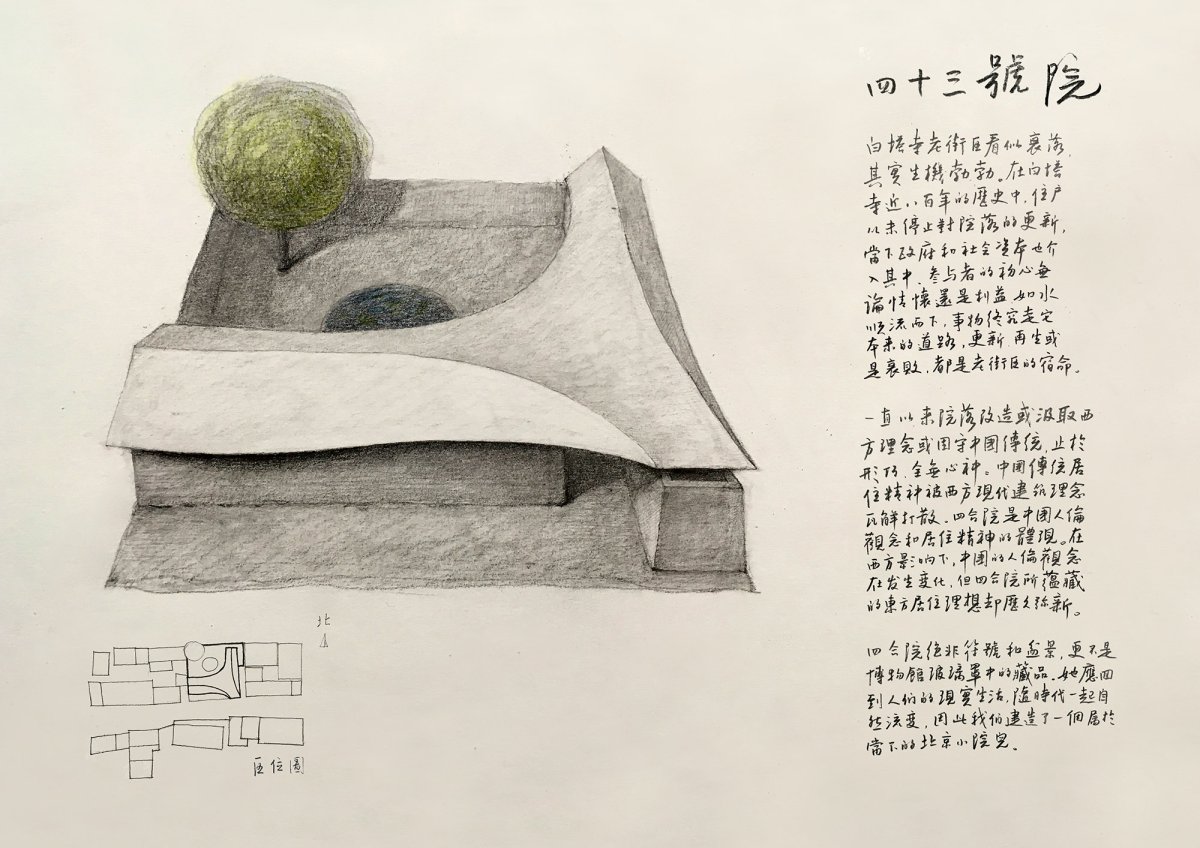 四十三號院
白塔寺老街區看似衰落，
其實生機勃勃。在白塔
寺近八百年的歷史中，住戶
從未停止對院落的更新，
當下政府和社會資本也介
入其中，參与者的初心無
論情懷還是利益，如水
順流而下，事物終究走它
本來的道路，更新、再生或
是衰敗，都是老街區的宿命。
一直以來院落改造或汲取西
方理念或固守中國傳統，止於
形巧，全無心神。中國傳統居
住精神被西方現代建筑理念
瓦解打散。四合院是中國人倫
觀念和居住精神的體現。在
西方影响下，中國的人倫觀念
在发生变化，但四合院所蘊藏
的東方居住理想却歷久弥新。
四合院絕非符號和盆景，更不是
博物館玻璃罩中的藏品。她應回
到人们的現實生活，隨時代一起自
然流变，因此我们建造了一個屬於
當下的北京小院兒。
北
區位圖